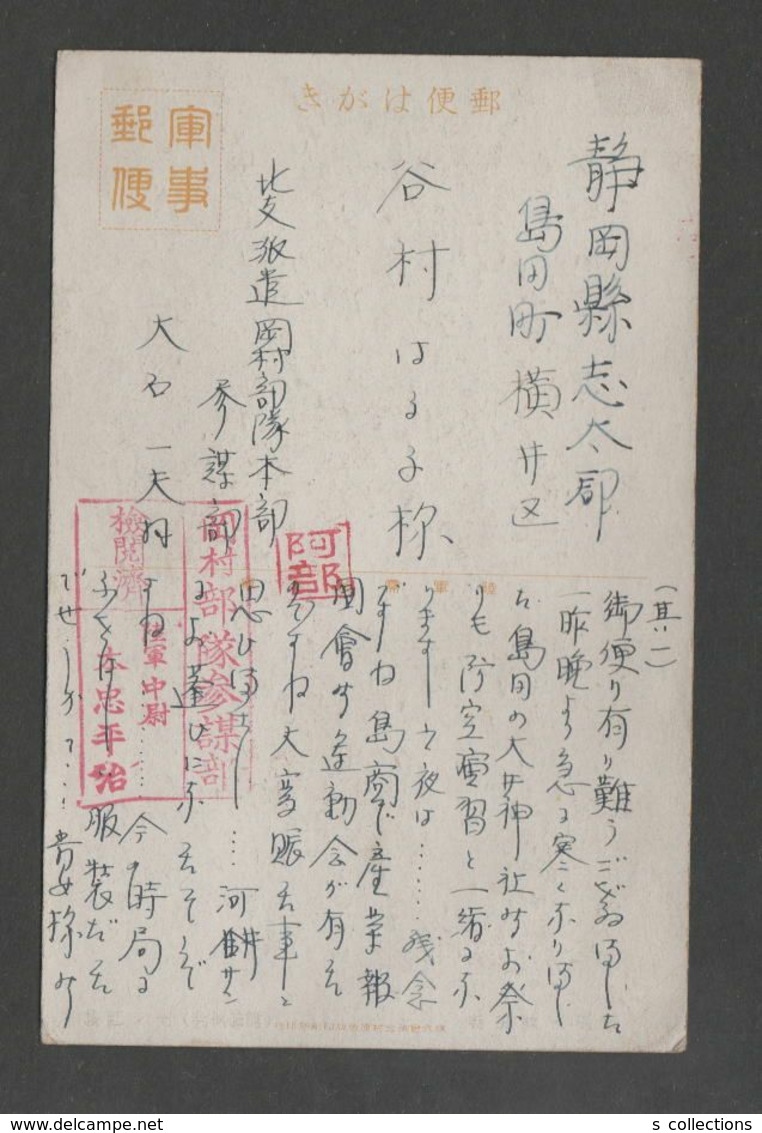 郵便はがき
軍事
郵便
静岡縣志太郡
島田町横井区
谷村はる子様
北支派遣岡村部隊本部
参謀部
大石一夫
岡村部隊参謀部
檢閲濟
陸軍中尉
本忠平治
阿部
(其ノ一)
御便り有り難うござゐました
一昨晩より急に寒くなりまし
た 島田の大井神社のお祭
りも防空演習と一緒にな
りますし 夜は……残念
ですね 島商で産業報
國會の運動会が有る
さうですね 大変賑な事と
思ひます……河餅サン
によく逢ひになるそうで
すね……今の時局に
服装だ
でせうか……貴女様の
s collections